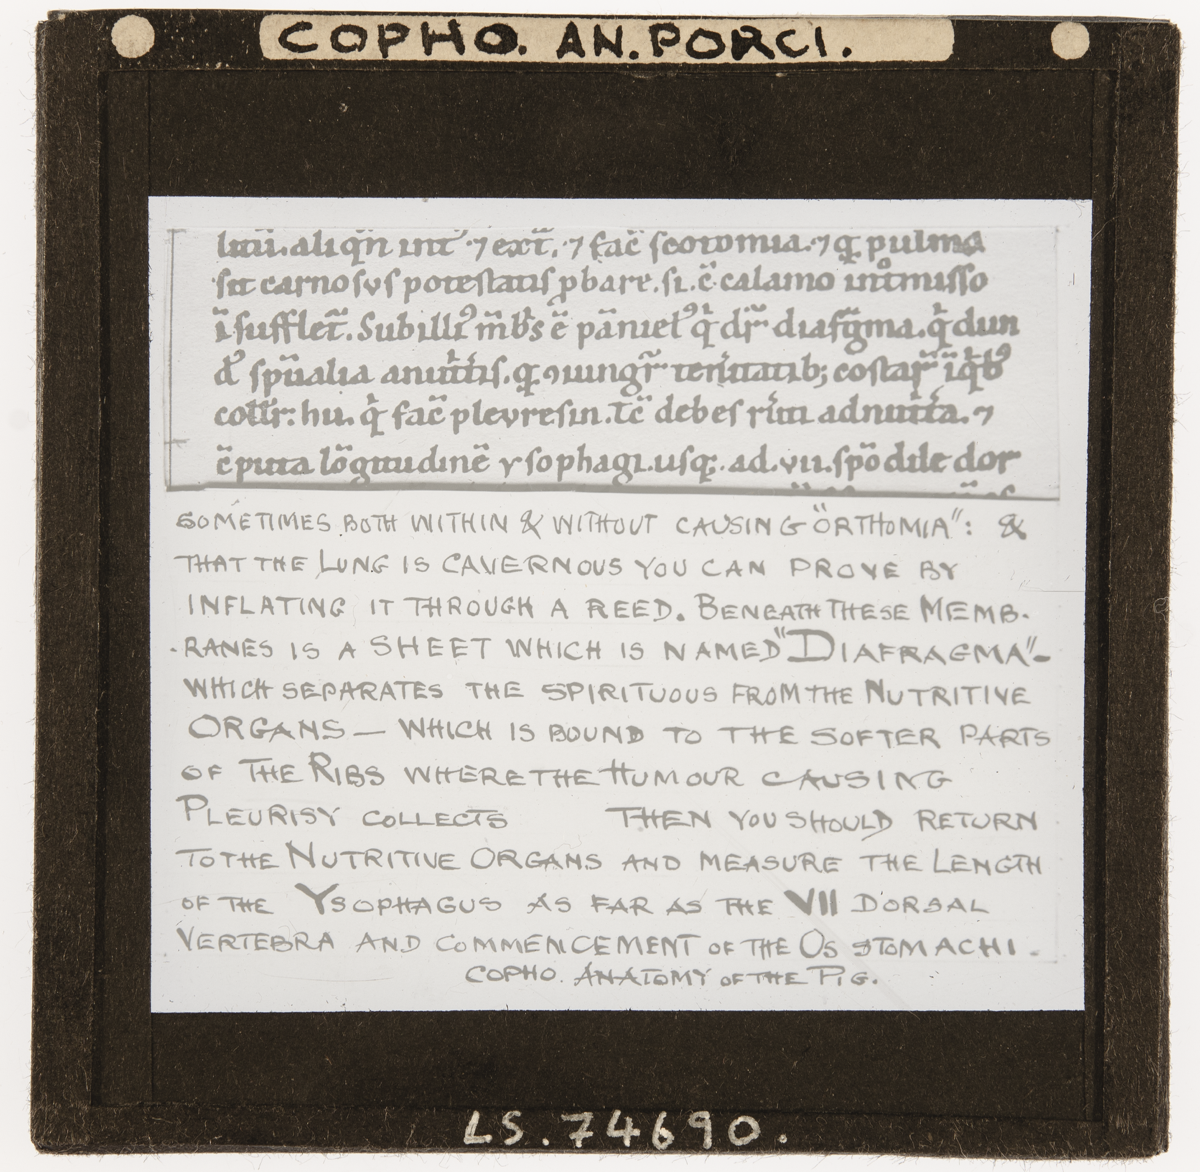 COPHO. AN. PORCI.
aliqn int 7 ext. 7 fac scotomia. 7 q pulmo
sit carnosus potestatis pbare. si. c calamo intmisso
i sufflet. Sub illis mbs e panicl q dr diafgma. q dun
d spualia a nutitis. q iungr costar
colr. hu. q fac plevresin. Tc debes ad nutita. 7
c puta logitudine ysophagi. usq; ad. vii. spodile dor
SOMETIMES BOTH WITHIN & WITHOUT CAUSING "ORTHOMIA": &
THAT THE LUNG IS CAVERNOUS YOU CAN PROVE BY
INFLATING IT THROUGH A REED. BENEATH THESE MEMB-
-RANES IS A SHEET WHICH IS NAMED "DIAFRAGMA"-
WHICH SEPARATES THE SPIRITUOUS FROM THE NUTRITIVE
ORGANS — WHICH IS BOUND TO THE SOFTER PARTS
OF THE RIBS WHERE THE HUMOUR CAUSING
PLEURISY COLLECTS THEN YOU SHOULD RETURN
TO THE NUTRITIVE ORGANS AND MEASURE THE LENGTH
OF THE YSOPHAGUS AS FAR AS THE VII DORSAL
VERTEBRA AND COMMENCEMENT OF THE OS STOMACHI.
COPHO. ANATOMY OF THE PIG.
LS. 74690.